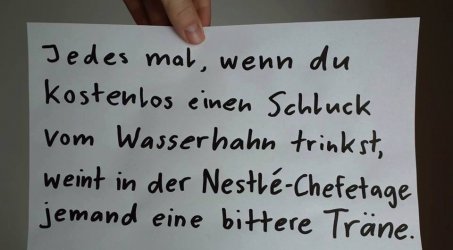 Jedes mal, wenn du
kostenlos einen Schluck
vom Wasserhahn trinkst,
weint in der Nestlé-Chefetage
jemand eine bittere Träne.